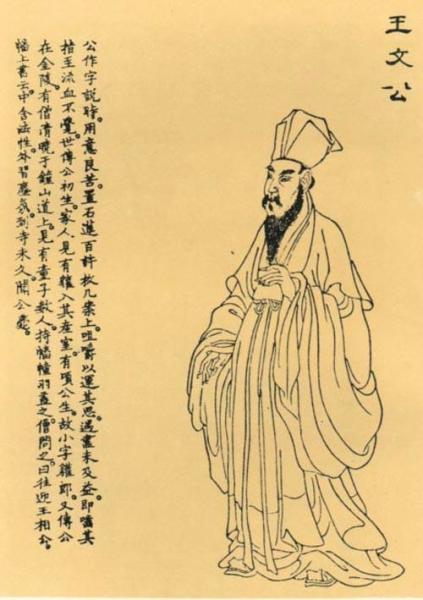 王文公
公作字說時。用意良苦。置石蓮百許枚几案上咀嚼以運其思。遇盡未及益。即嚙其
指至流血不覺。世傳公初生。家人見有獾入其產室。有頃公生。故小字獾郎。又傳公
在金陵。有僧清曉于鐘山道上。見有童子數人。持幡幢羽蓋之。僧問之。曰往迎王相公。
幡上書云。中含法性。外習塵氛。到寺未久聞公薨。